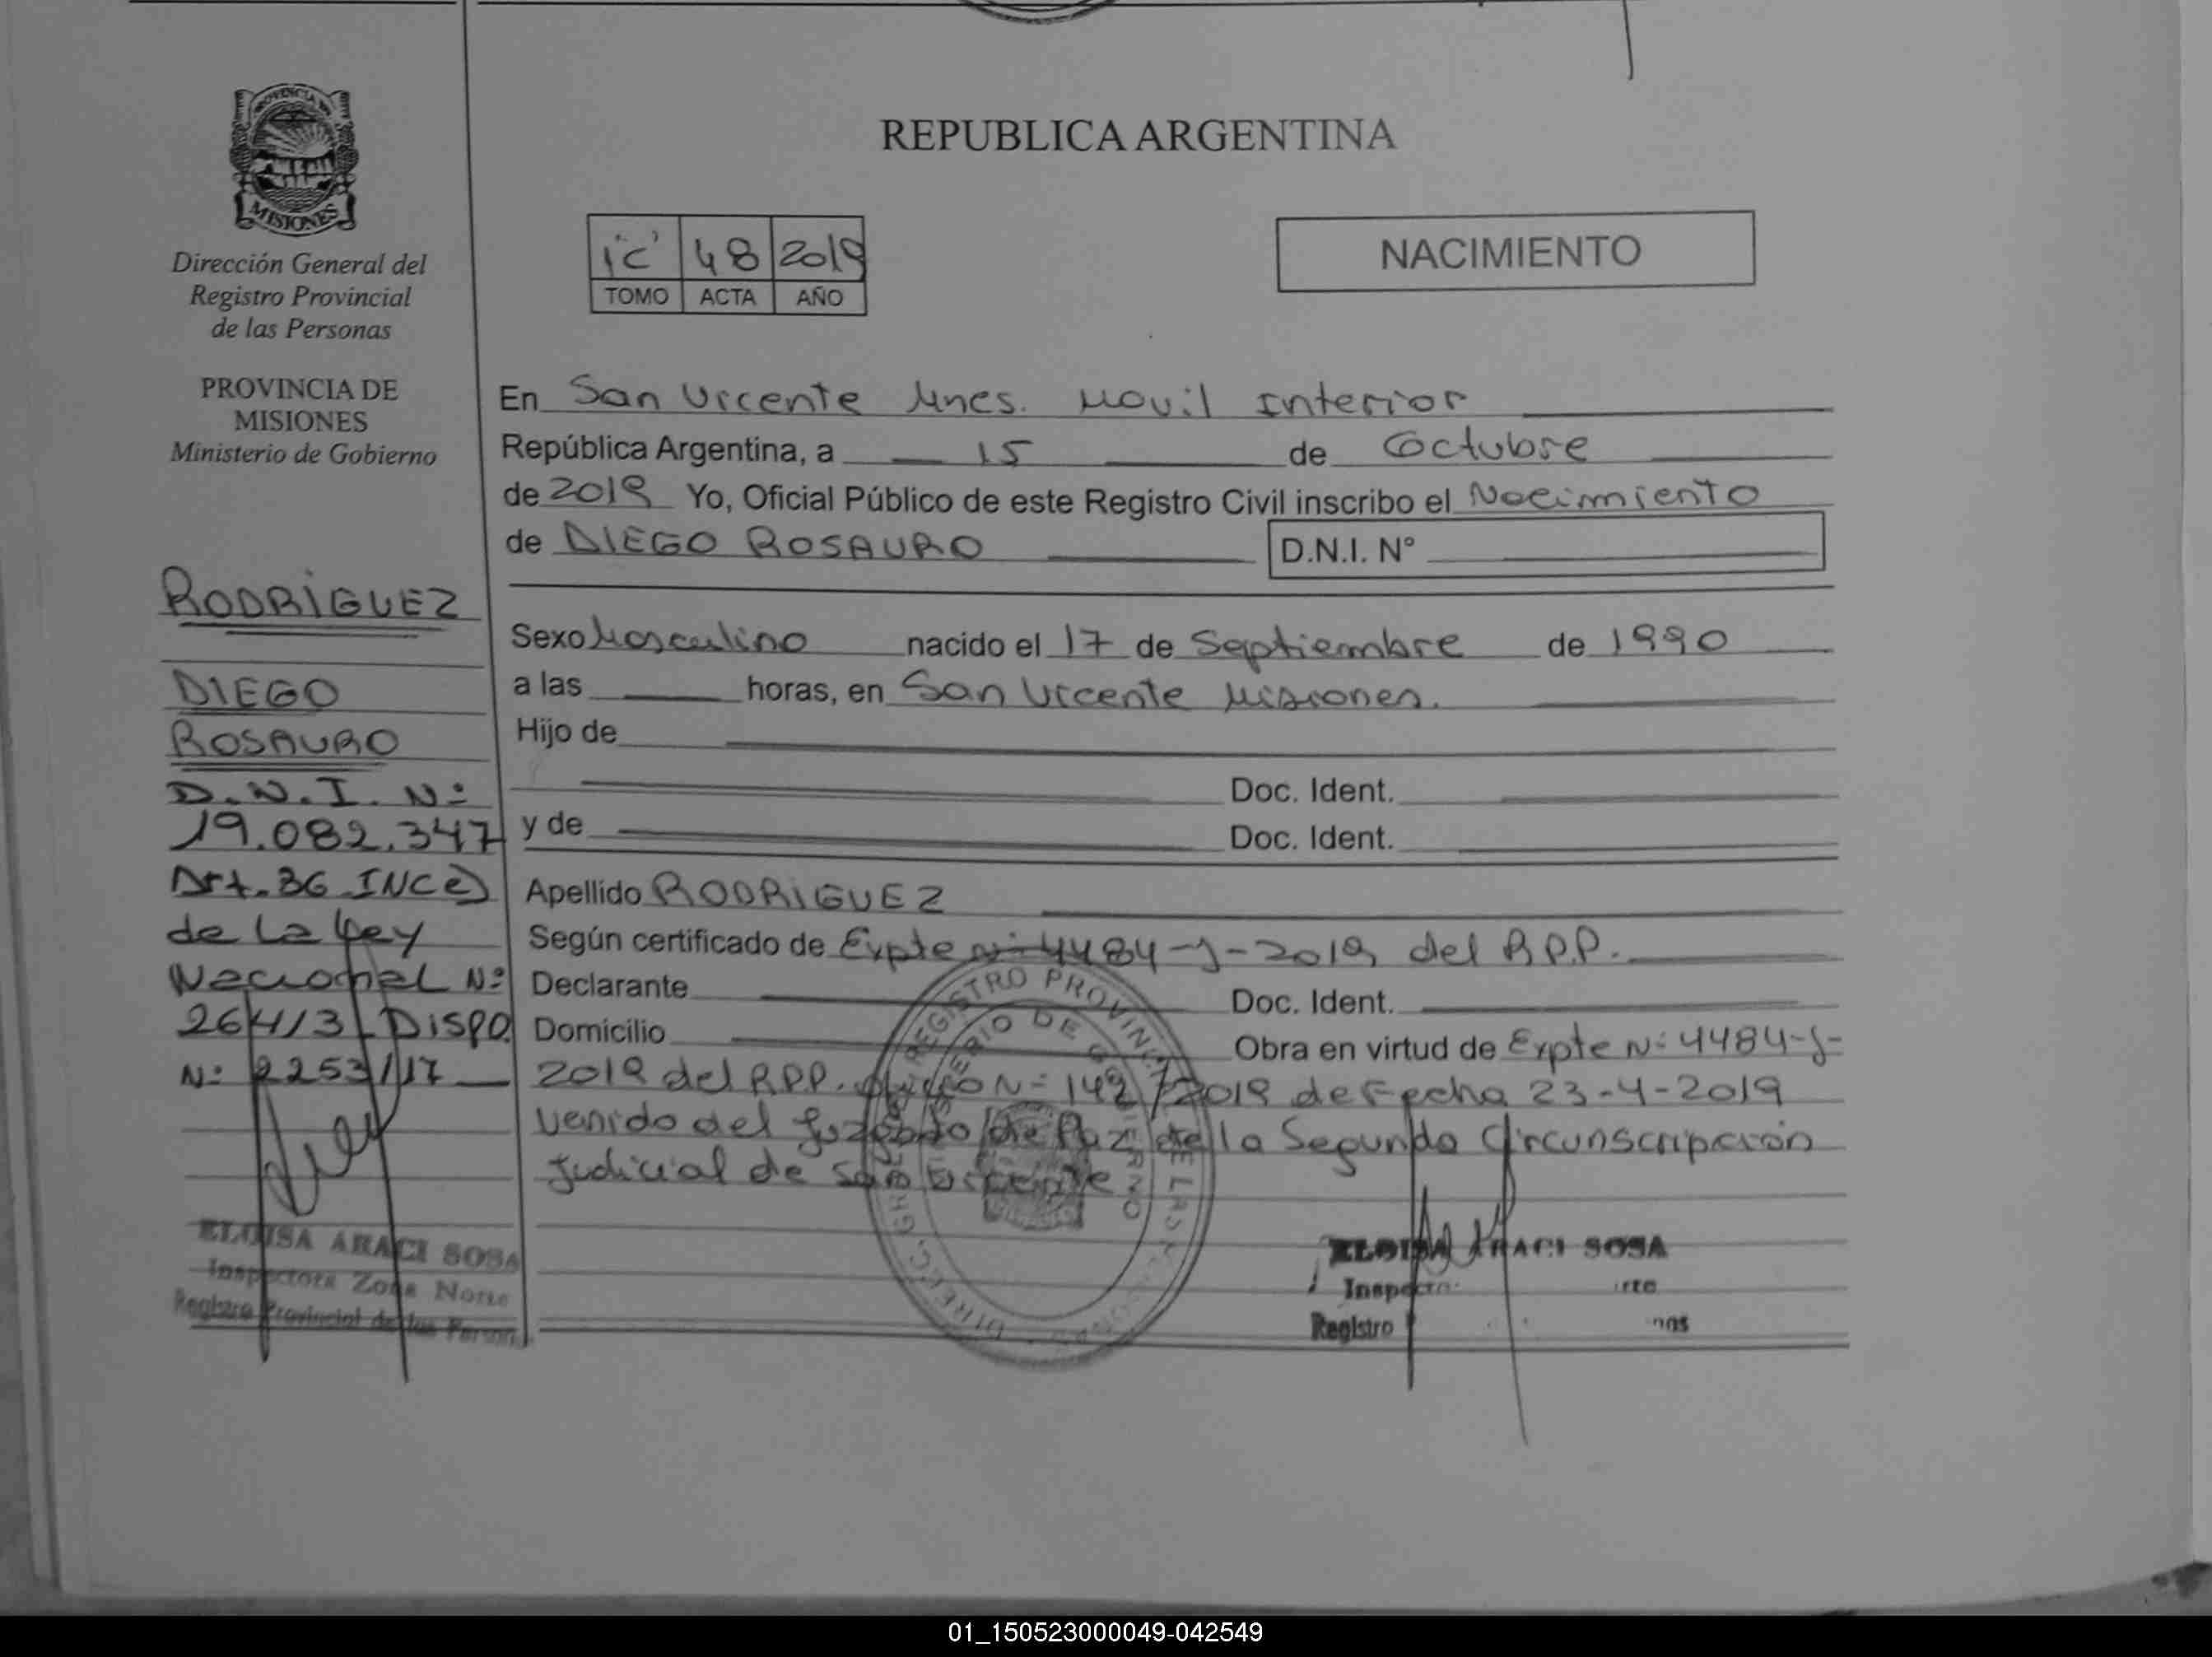 PROVINCIA DE
MISIONES
Dirección General del
Registro Provincial
de las Personas
PROVINCIA DE
MISIONES
Ministerio de Gobierno
RODRIGUEZ
DIEGO
ROSAURO
D.N.I. Nº
19.082.347
Art. 36 INC e)
de La Ley
Nacional Nº
26413 Dispo.
Nº 2253/17
ELOISA ARACI SOSA
Inspectora Zona Norte
Registro Provincial de las Person
REPUBLICA ARGENTINA
"1c" 48 2019
TOMO ACTA AÑO
NACIMIENTO
En San Vicente Mnes. Movil Interior
República Argentina, a 15 de Octubre
de 2019 Yo, Oficial Público de este Registro Civil inscribo el Nacimiento
de DIEGO ROSAURO D.N.I. N°
Sexo Masculino nacido el 17 de Septiembre de 1990
a las horas, en San Vicente Misiones.
Hijo de
Doc. Ident.
y de Doc. Ident.
Apellido RODRIGUEZ
Según certificado de Expte Nº 4484-J-2019 del R.P.P.
Declarante Doc. Ident.
Domicilio Obra en virtud de Expte Nº 4484-J-
2019 del R.P.P. Nº 142/2019 de Fecha 23-4-2019
venido del Juzgado de Paz de la Segunda Circunscripción
Judicial de San Vicente
ELOISA ARACI SOSA
Registro
01_150523000049-042549